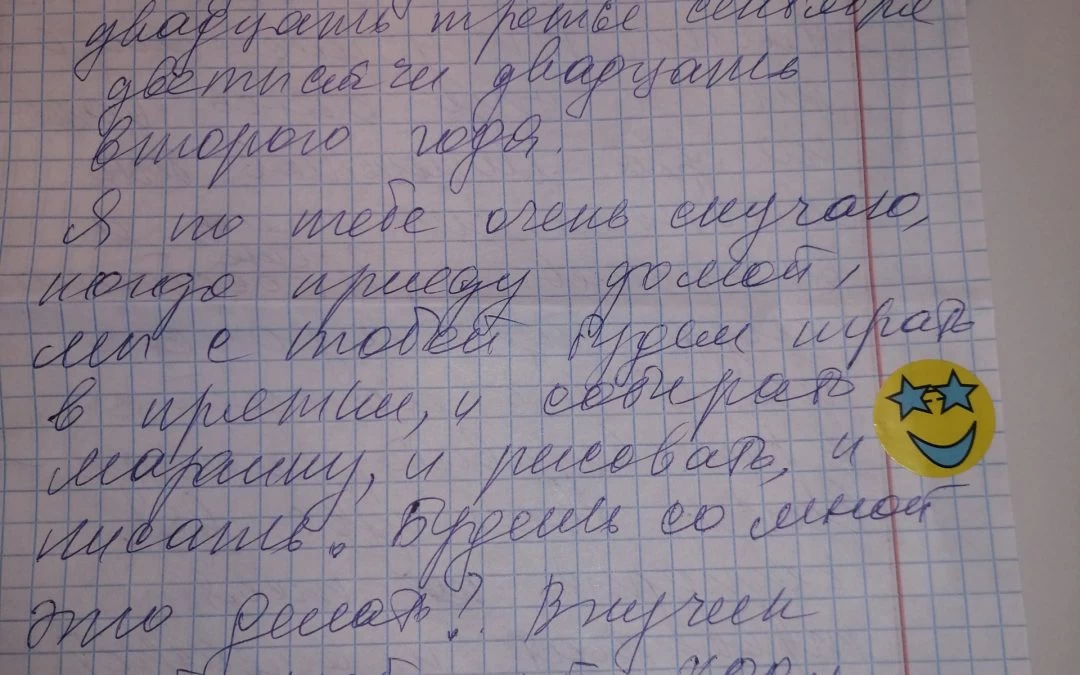 двадцать третье сентября
дветысячи двадцать
второго года.
Я по тебе очень скучаю,
когда приеду домой,
мы с тобой будем играть
в прятки, и собирать
марашку, и рисовать, и
писать. Будешь со мной
это делать? Внучек